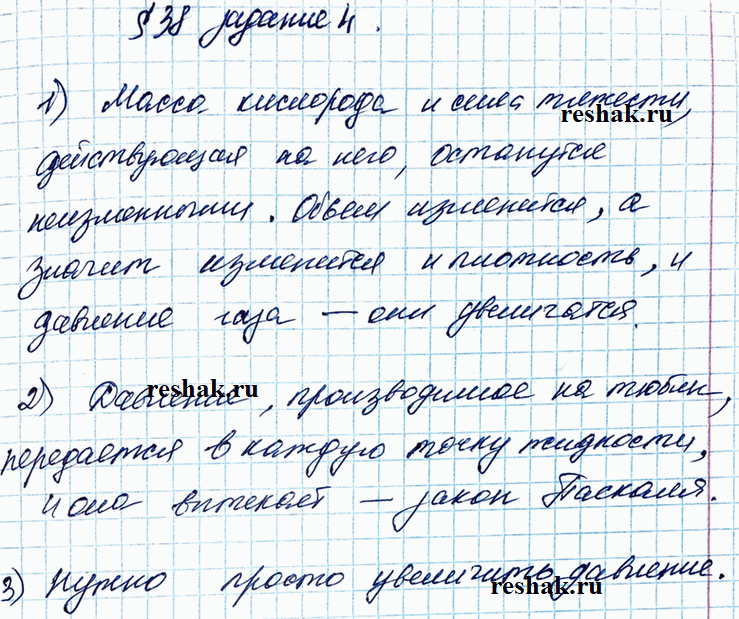 §38 задание 4.
1) Масса кислорода и сила тяжести,
reshak.ru
действующая на него, останутся
неизменными. Объем изменится, а
значит изменится и плотность, и
давление газа — они увеличатся.
reshak.ru
2) Давление, производимое на тюбик,
передается в каждую точку жидкости,
и она вытекает — закон Паскаля.
3) Нужно просто увеличить давление.
reshak.ru